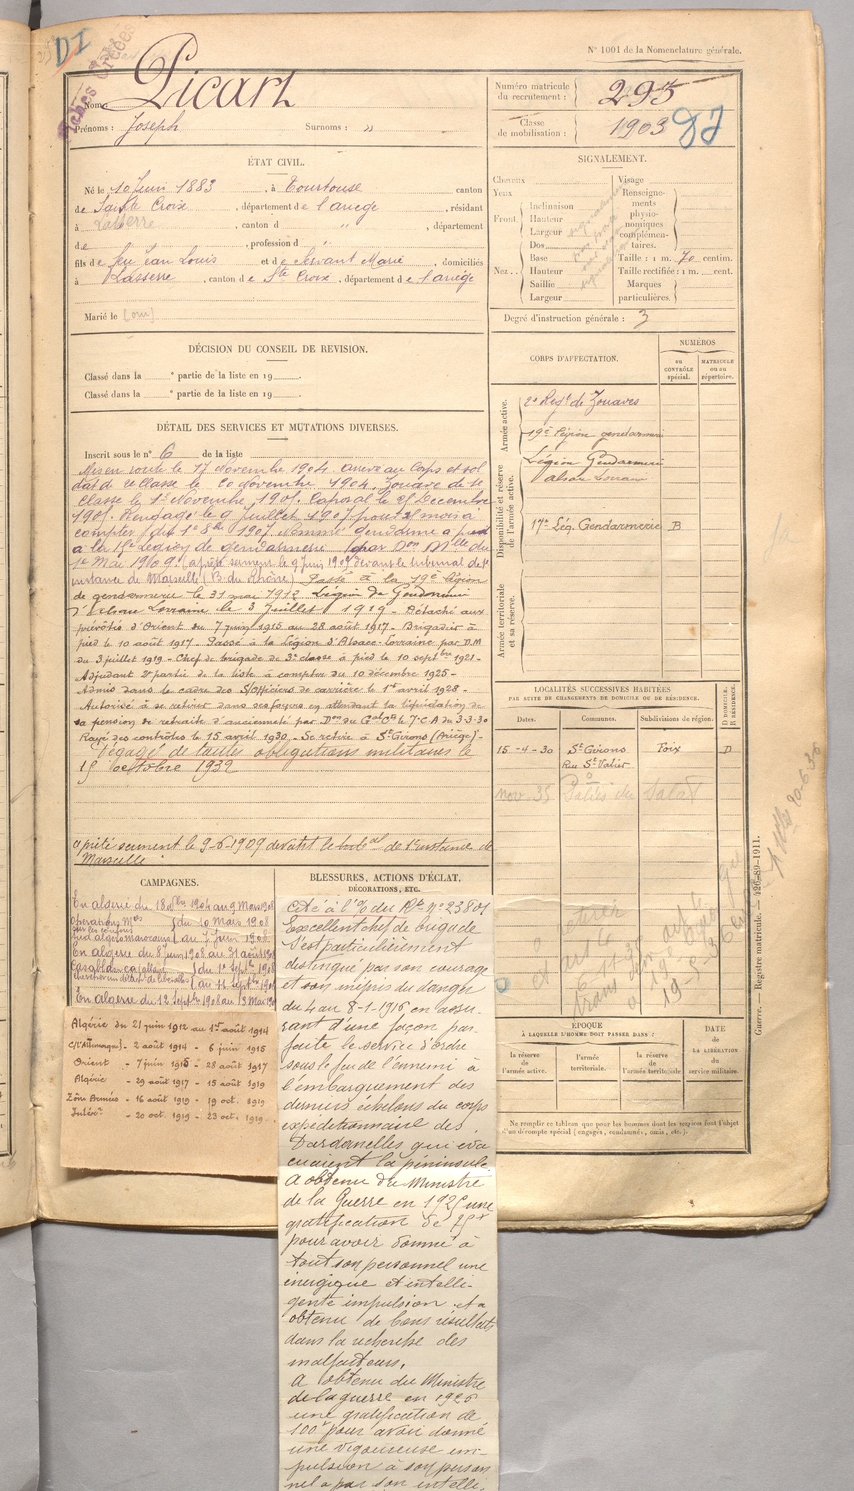 DI
Fiches Créées
N° 1001 de la Nomenclature générale.
Nom : Picart
Prénoms : Joseph Surnoms : "
Numéro matricule du recrutement : 295
Classe de mobilisation : 1903
ÉTAT CIVIL.
Né le 10 Juin 1883, à Tourtouse canton
de Sainte Croix, département de l'ariège, résidant
à Lasserre, canton d ", département
de, profession d "
fils de feu Jean Louis et de Servant Marie, domiciliés
à Lasserre, canton de Ste Croix, département de l'ariège
Marié le (oui)
SIGNALEMENT.
Cheveux
Yeux
Front
Inclinaison
Hauteur
Largeur
Nez
Dos
Base
Hauteur
Saillie
Largeur
Visage
Renseignements physionomiques complémentaires.
Taille : 1 m. 70 centim.
Taille rectifiée : 1 m. cent.
Marques particulières.
Degré d'instruction générale : 3
DÉCISION DU CONSEIL DE REVISION.
Classé dans la e partie de la liste en 19
Classé dans la e partie de la liste en 19
DÉTAIL DES SERVICES ET MUTATIONS DIVERSES.
Inscrit sous le n° 6 de la liste
Mis en route le 17 Novembre 1904. arrivé au Corps et sol
dat de 2e Classe le 20 Novembre 1904. Zouave de 1e
Classe le 1er Novembre 1905. Caporal le 25 Décembre
1905. Rengagé le 9 Juillet 1907 pour mois à
compter du 1e 8bre 1907. Nommé gendarme à pied
à la 15e Légion de gendarmerie par Don Mlle du
1er Mai 1909. (a prêté serment le 9 juin 1909 devant le tribunal de 1e
instance de Marseille (B. du Rhône) Passé à la 19e légion
de gendarmerie le 31 mai 1912 Légion de Gendarmerie
d'alsace Lorraine le 3 Juillet 1919 - Détaché aux
prévôtés d'Orient du 7 juin 1915 au 28 août 1917 - Brigadier à
pied le 10 août 1917 - Passé à la Légion d'Alsace-Lorraine par D.M
du 3 juillet 1919 - Chef de brigade de 3e classe à pied le 10 septbre 1921 -
Adjudant 2e partie de la liste à compter du 10 décembre 1925 -
Admis dans le cadre des S/Officiers de carrière le 1er avril 1928 -
Autorisé à se retirer dans ses foyers en attendant la liquidation de
sa pension de retraite d'ancienneté par Don du Gal Ct le 7e C.A du 3-3-30
Rayé des contrôles le 15 avril 1930 - Se retire à St Girons (Ariège) -
Dégagé de toutes obligations militaires le
15 octobre 1932
a prêté serment le 9-6-1909 devant le de 1e instance de
Marseille
CORPS D'AFFECTATION.
NUMÉROS
AU CONTRÔLE spécial.
MATRICULE ou au répertoire.
Armée active.
2e Regt de Zouaves
19e Légion gendarmerie
Disponibilité et réserve de l'armée active.
Légion Gendarmerie
alsace Lorraine
17e Lég. Gendarmerie B
Armée territoriale et sa réserve.
LOCALITÉS SUCCESSIVES HABITÉES
PAR SUITE DE CHANGEMENTS DE DOMICILE OU DE RÉSIDENCE.
Dates. Communes. Subdivisions de région. D DOMICILE. R RÉSIDENCE.
15-4-30 St Girons Foix D
Rue St Valier
nov-35 Salies du Salat
CAMPAGNES.
En algérie du 18 9bre 1904 au 9 Mars 1908
opérations Mres
sur les confins
algéro marocains
du 10 Mars 1908
au 7 juin 1908
En algérie du 8 juin 1908 au 31 août 1908
Casablanca
du 1er Septbre 1908
au 11 Septbre 1908
En algérie du 12 Septbre 1908 au
Algérie du 21 juin 1912 au 1er août 1914
C/(Allemagne) - 2 août 1914 - 6 juin 1915
Orient - 7 juin 1915 - 28 août 1917
Algérie - 29 août 1917 - 15 août 1919
Zône Armées - 16 août 1919 - 19 oct. 1919
- 20 oct. 1919 - 23 oct. 1919
BLESSURES, ACTIONS D'ÉCLAT,
DÉCORATIONS, ETC.
Cité à l'O/ du Rt n° 23801
Excellent chef de brigade
S'est particulièrement
distingué par son courage
et son mépris du danger
du 4 au 8-1-1916 en assu-
rant d'une façon par-
faite le service d'ordre
sous le feu de l'ennemi à
l'embarquement des
derniers échelons du corps
expéditionnaire des
Dardanelles qui éva
cuaient la péninsule.
A obtenu du Ministre
de la Guerre en 1925 une
gratification de 75f
pour avoir donné à
tout son personnel une
énergique et intelli-
gente impulsion et a
obtenu de bons résultats
dans la recherche des
malfaiteurs.
A obtenu du Ministre
de la guerre en 1926
une gratification de
100f pour avoir donné
une vigoureuse im-
pulsion à son person
nel a par son intelli
ÉPOQUE
À LAQUELLE L'HOMME DOIT PASSER DANS :
la réserve de l'armée active.
l'armée territoriale.
la réserve de l'armée territoriale
DATE de LA LIBÉRATION du service militaire.
Ne remplir ce tableau que pour les hommes dont les services font l'objet
d'un décompte spécial (engagés, condamnés, omis, etc.).
Guerre. — Registre matricule. — 426-89-1911.